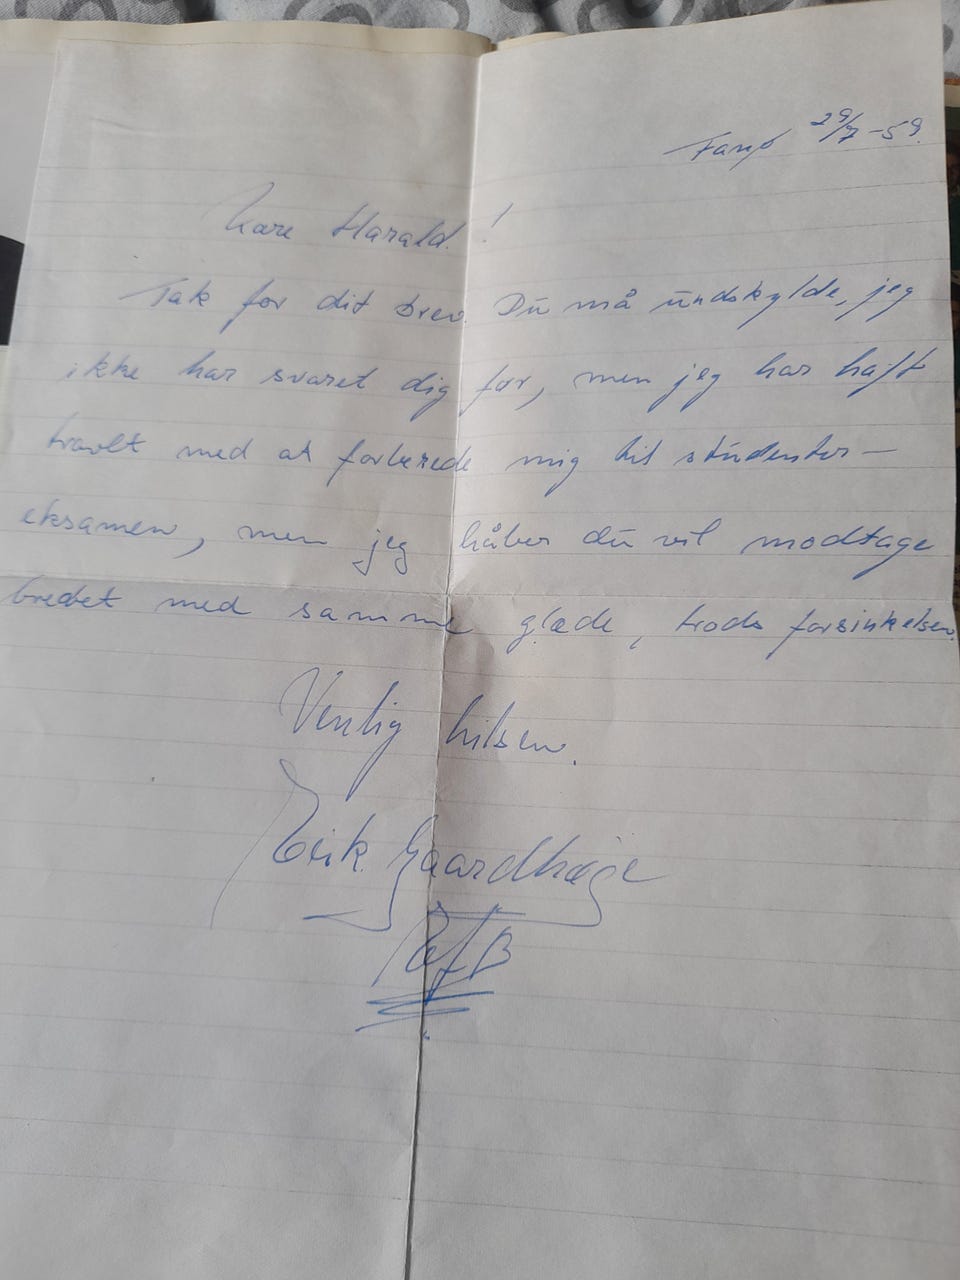 Fanø 29/7-59.
Kære Harald!
Tak for dit brev. Du må undskylde, jeg
ikke har svaret dig før, men jeg har haft
travlt med at forberede mig til studenter-
eksamen, men jeg håber du vil modtage
brevet med samme glæde, trods forsinkelsen.
Venlig hilsen.
Erik Gaardhøje
B